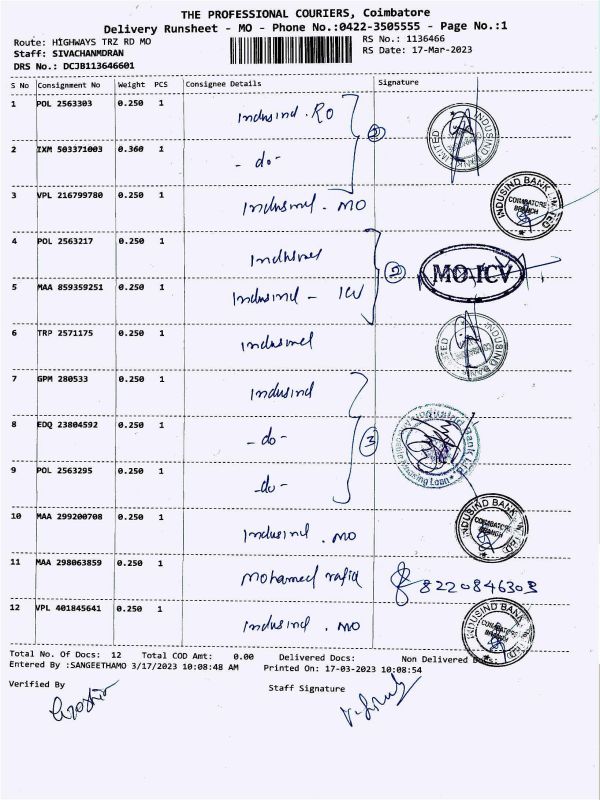 THE PROFESSIONAL COURIERS, Coimbatore
Delivery Runsheet - MO - Phone No.:0422-3505555 - Page No.:1
Route: HIGHWAYS TRZ RD MO
RS No.: 1136466
Staff: SIVACHANMDRAN
RS Date: 17-Mar-2023
DRS No.: DCJB113646601
S No Consignment No Weight PCS Consignee Details Signature
1 POL 2563303 0.250 1 Indusind . RO
2 IXM 503371003 0.360 1 - do -
3 VPL 216799780 0.250 1 Indusind . MO
INDUSIND BANK LIMITED COIMBATORE BRANCH
4 POL 2563217 0.250 1 Indusind
MO-ICV
5 MAA 859359251 0.250 1 Indusind - ICV
6 TRP 2571175 0.250 1 Indusind
7 GPM 280533 0.250 1 Indusind
8 EDQ 23804592 0.250 1 - do - 3
9 POL 2563295 0.250 1 - do -
10 MAA 299200708 0.250 1 Indusind . MO
11 MAA 298063859 0.250 1 Mohamed rafiq 8220846303
12 VPL 401845641 0.250 1 Indusind . MO
Total No. Of Docs: 12 Total COD Amt: 0.00 Delivered Docs: Non Delivered Docs:
Entered By :SANGEETHAMO 3/17/2023 10:08:48 AM Printed On: 17-03-2023 10:08:54
Verified By
Staff Signature